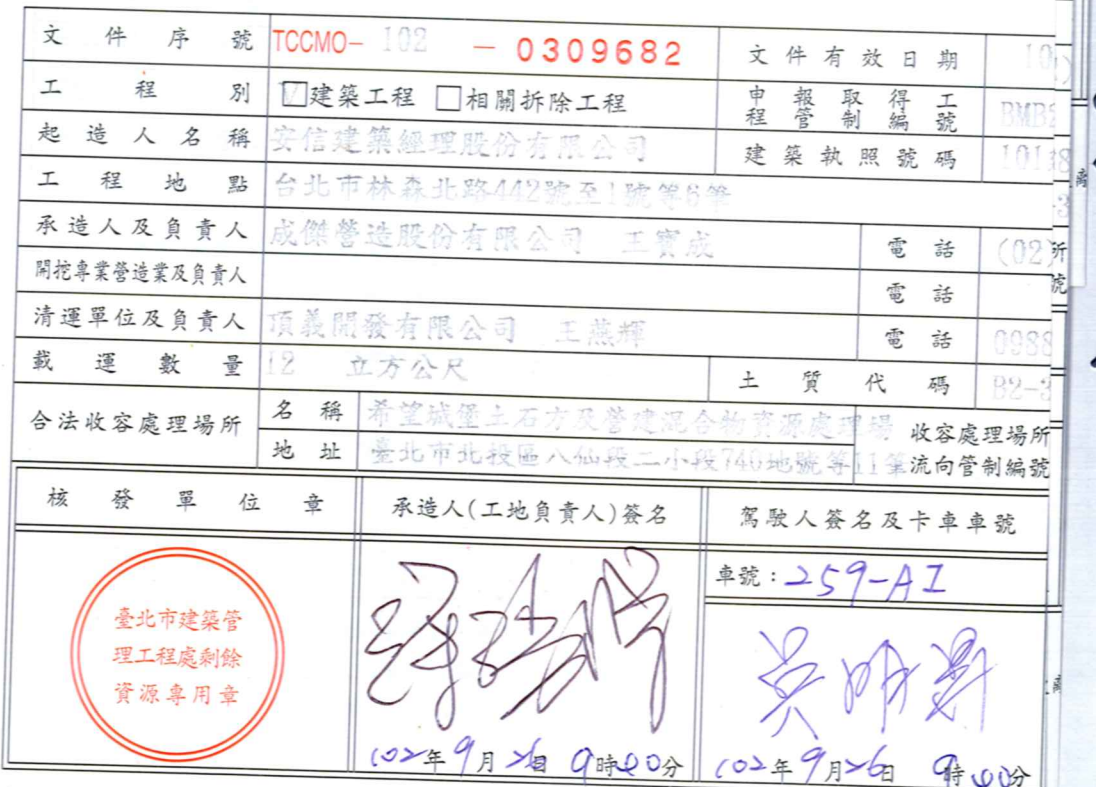 文件序號 TCCMO- 102 - 0309682 文件有效日期 10
工程別 ☑建築工程 □相關拆除工程 申報取得工程管制編號 BMB2
起造人名稱 安信建築經理股份有限公司 建築執照號碼 101
工程地點 台北市林森北路442號至1號等6筆
承造人及負責人 成傑營造股份有限公司 王寶成 電話 (02)
開挖專業營造業及負責人 電話
清運單位及負責人 頂義開發有限公司 王燕輝 電話 0988
載運數量 12 立方公尺 土質代碼 B2-3
合法收容處理場所 名稱 希望城堡土石方及營建混合物資源處理場 收容處理場所
地址 臺北市北投區八仙段二小段740地號等11筆 流向管制編號
核發單位章 承造人(工地負責人)簽名 駕駛人簽名及卡車車號
車號:259-AI
臺北市建築管
理工程處剩餘
資源專用章
吳明
102年9月26日 9時40分 102年9月26日 9時40分